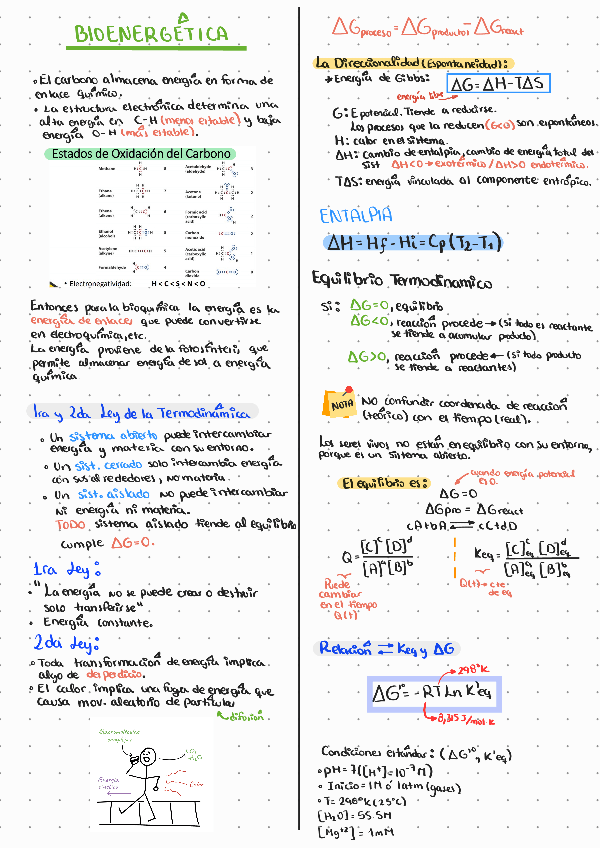 BIOENERGÉTICA
• El carbono almacena energía en forma de
enlace químico.
• La estructura electrónica determina una
alta energía en C-H (menor estable) y baja
energía O-H (más estable).
Estados de Oxidación del Carbono
Methane
Ethane (alkane)
Ethene (alkene)
Ethanol (alcohol)
Acetylene (alkyne)
Formaldehyde
Acetaldehyde (aldehyde)
Acetone (ketone)
Formic acid (carboxylic acid)
Carbon monoxide
Acetic acid (carboxylic acid)
Carbon dioxide
• Electronegatividad: H < C < S < N < O
Entonces para la bioquímica la energía es la
energía de enlaces que puede convertirse
en electroquímica, etc.
La energía proviene de la fotosíntesis, que
permite almacenar energía de sol a energía
química
1ra y 2da Ley de la Termodinámica
• Un sistema abierto puede intercambiar
energía y materia con su entorno.
• Un sist. cerrado solo intercambia energía
con sus alrededores, no materia.
• Un sist. aislado no puede intercambiar
ni energía ni materia.
TODO sistema aislado tiende al equilibrio
cumple ΔG=0.
1ra Ley:
• "La energía no se puede crear o destruir
solo transferirse"
• Energía constante.
2da Ley:
• Toda transformación de energía implica
algo de desperdicio.
• El calor implica una fuga de energía que
causa mov. aleatorio de partículas
difusión
ΔGproceso = ΔGproductos - ΔGreact
La Direccionalidad (Espontaneidad):
→ Energía de Gibbs: ΔG = ΔH-TΔS
energía libre
G: E potencial. Tiende a reducirse.
Los procesos que la reducen (G<0) son espontáneos.
H: calor en el sistema.
ΔH: cambio de entalpía, cambio de energía total del
sist ΔH<0 → exotérmico / ΔH>0 endotérmico.
TΔS: energía vinculada al componente entrópico.
ENTALPIA
ΔH = Hf - Hi = Cp (T2-T1)
Equilibrio Termodinamico
Si: ΔG=0, equilibrio
ΔG<0, reacción procede → (Si todo es reactante
se tiende a acumular producto)
ΔG>0, reacción procede ← (si todo producto
se tiende a reactantes)
NOTA No confundir coordenada de reacción
(teórico) con el tiempo (real).
Los seres vivos no están en equilibrio con su entorno,
porque es un sistema abierto.
El equilibrio es: cuando energía potencial
es 0.
ΔG=0
ΔGpro = ΔGreact
cA+bA ⇌ cC+dD
Q = [C]^c [D]^d / [A]^a [B]^b
Keq = [C]^c eq [D]^d eq / [A]^a eq [B]^b eq
Puede
cambiar
en el tiempo
Q(t)
Q(t) → cte
de eq
Relación ⇌ Keq y ΔG
298°K
ΔG'° = -RT Ln K'eq
8,315 J/mol·K
Condiciones estándar: (ΔG'°, K'eq)
• pH = 7 ([H+] = 10^-7 M)
• Inicio = 1M ó 1atm (gases)
• T = 298°K (25°C)
[H2O] = 55.5M
[Mg+2] = 1mM